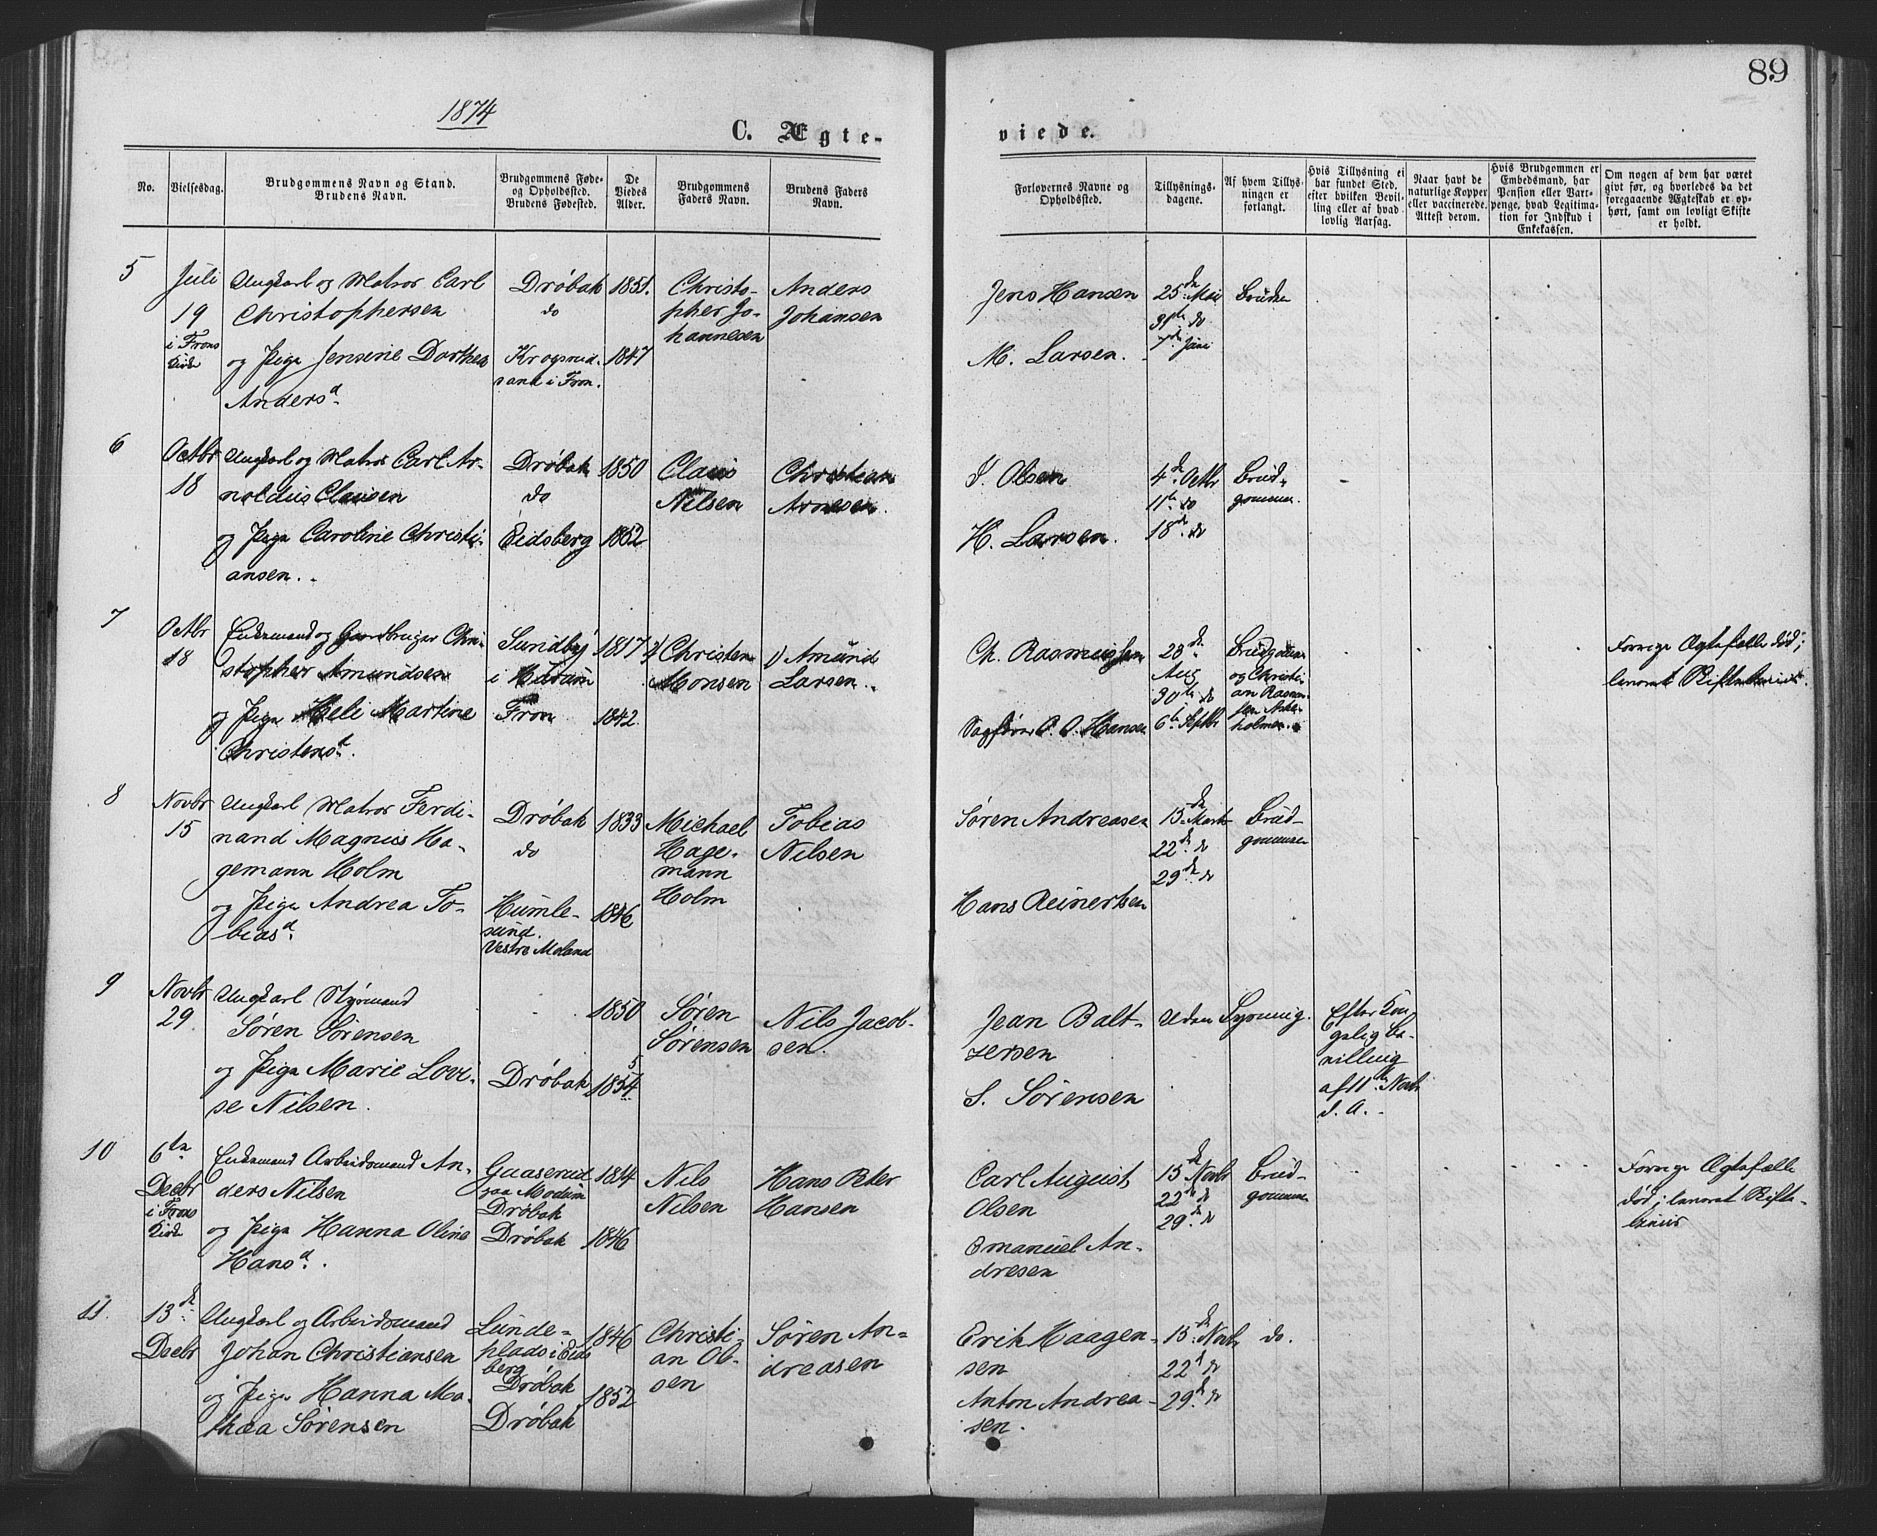 89
1874
C. Ægte-
viede.
No.
Vielsesdag.
Brudgommens Navn og Stand.
Brudens Navn.
Brudgommens Føde-
og Opholdssted.
Brudens Fødested.
De
Viedes
Alder.
Brudgommens
Faders Navn.
Brudens Faders
Navn.
Forlovernes Navne og
Opholdssted.
Tillysnings-
dagene.
Af hvem Tillys-
ningen er
forlangt.
Hvis Tillysning ei
har fundet Sted,
efter hvilken Bevil-
ling eller af hvad
lovlig Aarsag.
Naar havt de
naturlige Kopper
eller vaccinerede.
Attest derom.
Hvis Brudgommen er
Embedsmand, har
Pension eller Vart-
penge, hvad Legitima-
tion for Indskud i
Enkekassen.
Om nogen af dem har været
givt før, og hvorledes da det
foregaaende Ægteskab er op-
hørt, samt om lovligt Skifte
er holdt.
5
Juli
19
i Frons
Kirke
Ungkarl og Matros Carl
Christophersen
og Pige Jensine Dorthea
Andersd.
Drøbak
do
Krogsrud-
sand i Fron.
1851.
1847
Christo-
pher Jo-
hannesen
Anders
Johansen
Jens Hansen
M. Larsen.
25de Mai
31te do
7de Juni
Bruden
6
Octbr
18
Ungkarl og Matros Carl Ar-
noldus Clausen
og Pige Caroline Christi-
ansen.
Drøbak
do
Eidsberg
1850
1852
Claus
Nilsen
Christian
Arnesen.
Olsen
H. Larsen.
4de Octbr
11te do
18de do
Brud-
gommen.
7
Octbr
18
Enkemand og Gaardbruger Chri-
stopher Amundsen
og Pige Meli Martine
Christensd.
Sundby
i Hurum
Fron
1817
1842
2) Christen
Monsen
1) Amund
Larsen.
Ch. Rasmussen
Sagfører O. O. Hansen
23de
Aug
30te do
6te Septbr
Brudgommen
og Christi-
an Rasmus-
sen
holmen.
Forrige Ægtefælle død;
leveret Skiftebeviis.
8
Novbr
15
Ungkarl Matros Ferdi-
nand Magnus Ha-
gemann Holm
og Pige Andrea To-
biasd.
Drøbak
do
Humle-
sund.
Vestre Moland
1833
1846
Michael
Hage-
mann
Holm
Tobias
Nilsen
Søren Andreasen
Hans Reinertsen
15de Marts
22de do
29de do
Brud-
gommen
9
Novbr
29
Ungkarl Styrmand
Søren Sørensen
og Pige Marie Lovi-
se Nilsen.
Drøbak
1850
5
1854
Søren
Sørensen
Nils Jacob-
sen.
Jean Balt-
zersen
S. Sørensen
Uden Lysning.
Efter Kon-
gelig Be-
villing
af 11te Novbr
d. A.
10
6te
Decbr
i Frons
Kirke
Enkemand Arbeidsmand An-
ders Nilsen
og Pige Hanna Oline
Hansd.
Guaserud
paa Modum
Drøbak
Drøbak
1814
1846
Nils
Nilsen
Hans Peter
Hansen
Carl August
Olsen
Emanuel An-
dresen
15de Novbr
22de do
29de do
Brud-
gommen
Forrige Ægtefælle
død; leveret Skifte-
beviis
11
13de
Decbr
Ungkarl og Arbeidsmand
Johan Christiansen
og Pige Hanna Ma-
thea Sørensen
Lunde-
plads i Eids
berg
Drøbak
Drøbak
1846
1852
Christi-
an Ol-
sen
Søren An-
dreasen
Erik Haagen-
sen
Anton Andrea-
sen.
15de Novbr
22d do
29de do
do.